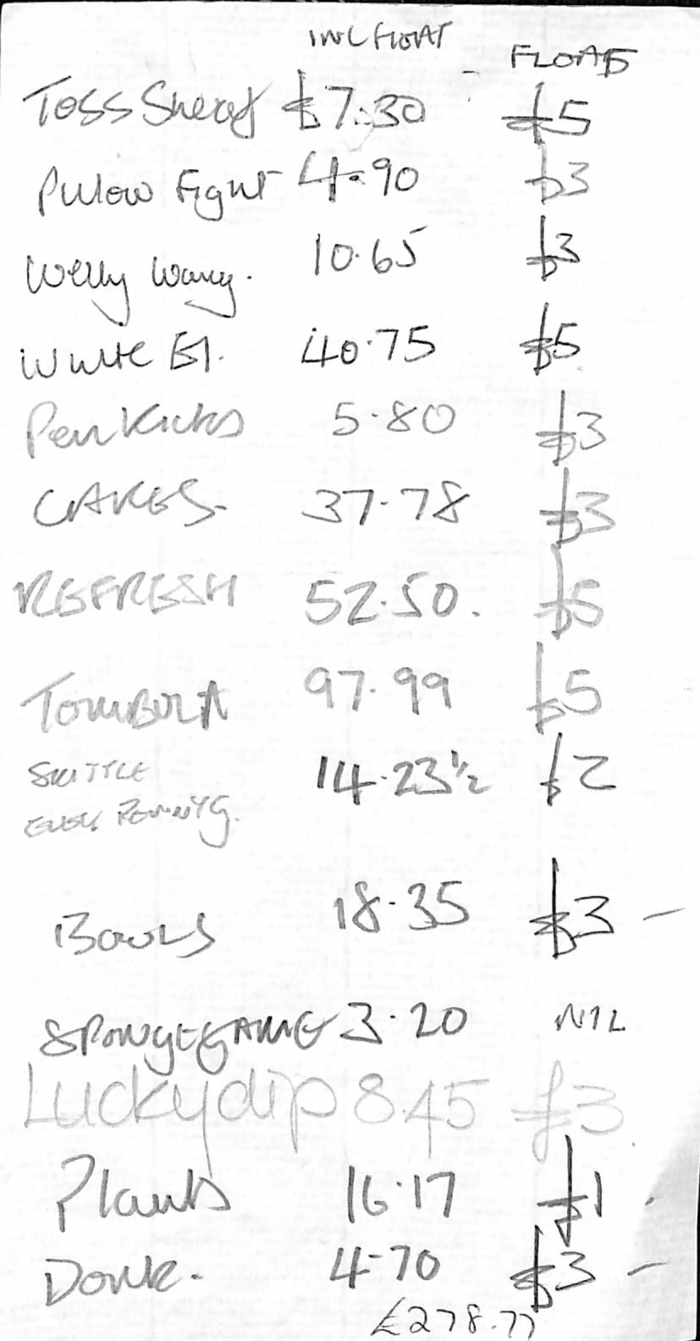 INCL FLOAT - FLOATS
Toss Sheaf £7.30 £5
Pillow Fight 4.90 £3
Welly Wang. 10.65 £3
White El. 40.75 £5
Pen Kicks 5.80 £3
CAKES. 37.78 £3
REFRESH 52.50. £5
TOMBOLA 97.99 £5
SKITTLE 14.23½ £2
Bowls 18.35 £3 -
SPONGE GAME 3.20 NIL
Lucky dip 8.45 £3
Plants 16.17 £1 -
4.70 £3 -
£278.77